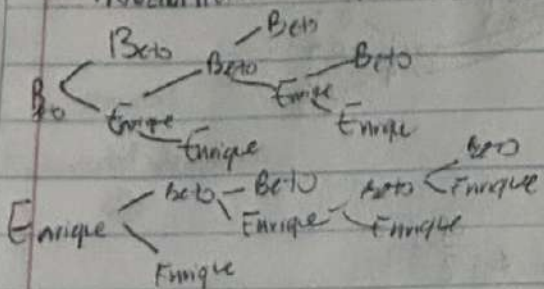 Beto
Beto
Beto Beto
Beto Enrique
Enrique Enrique
Enrique
Beto
Beto Beto Beto Enrique
Enrique Enrique Enrique
Enrique